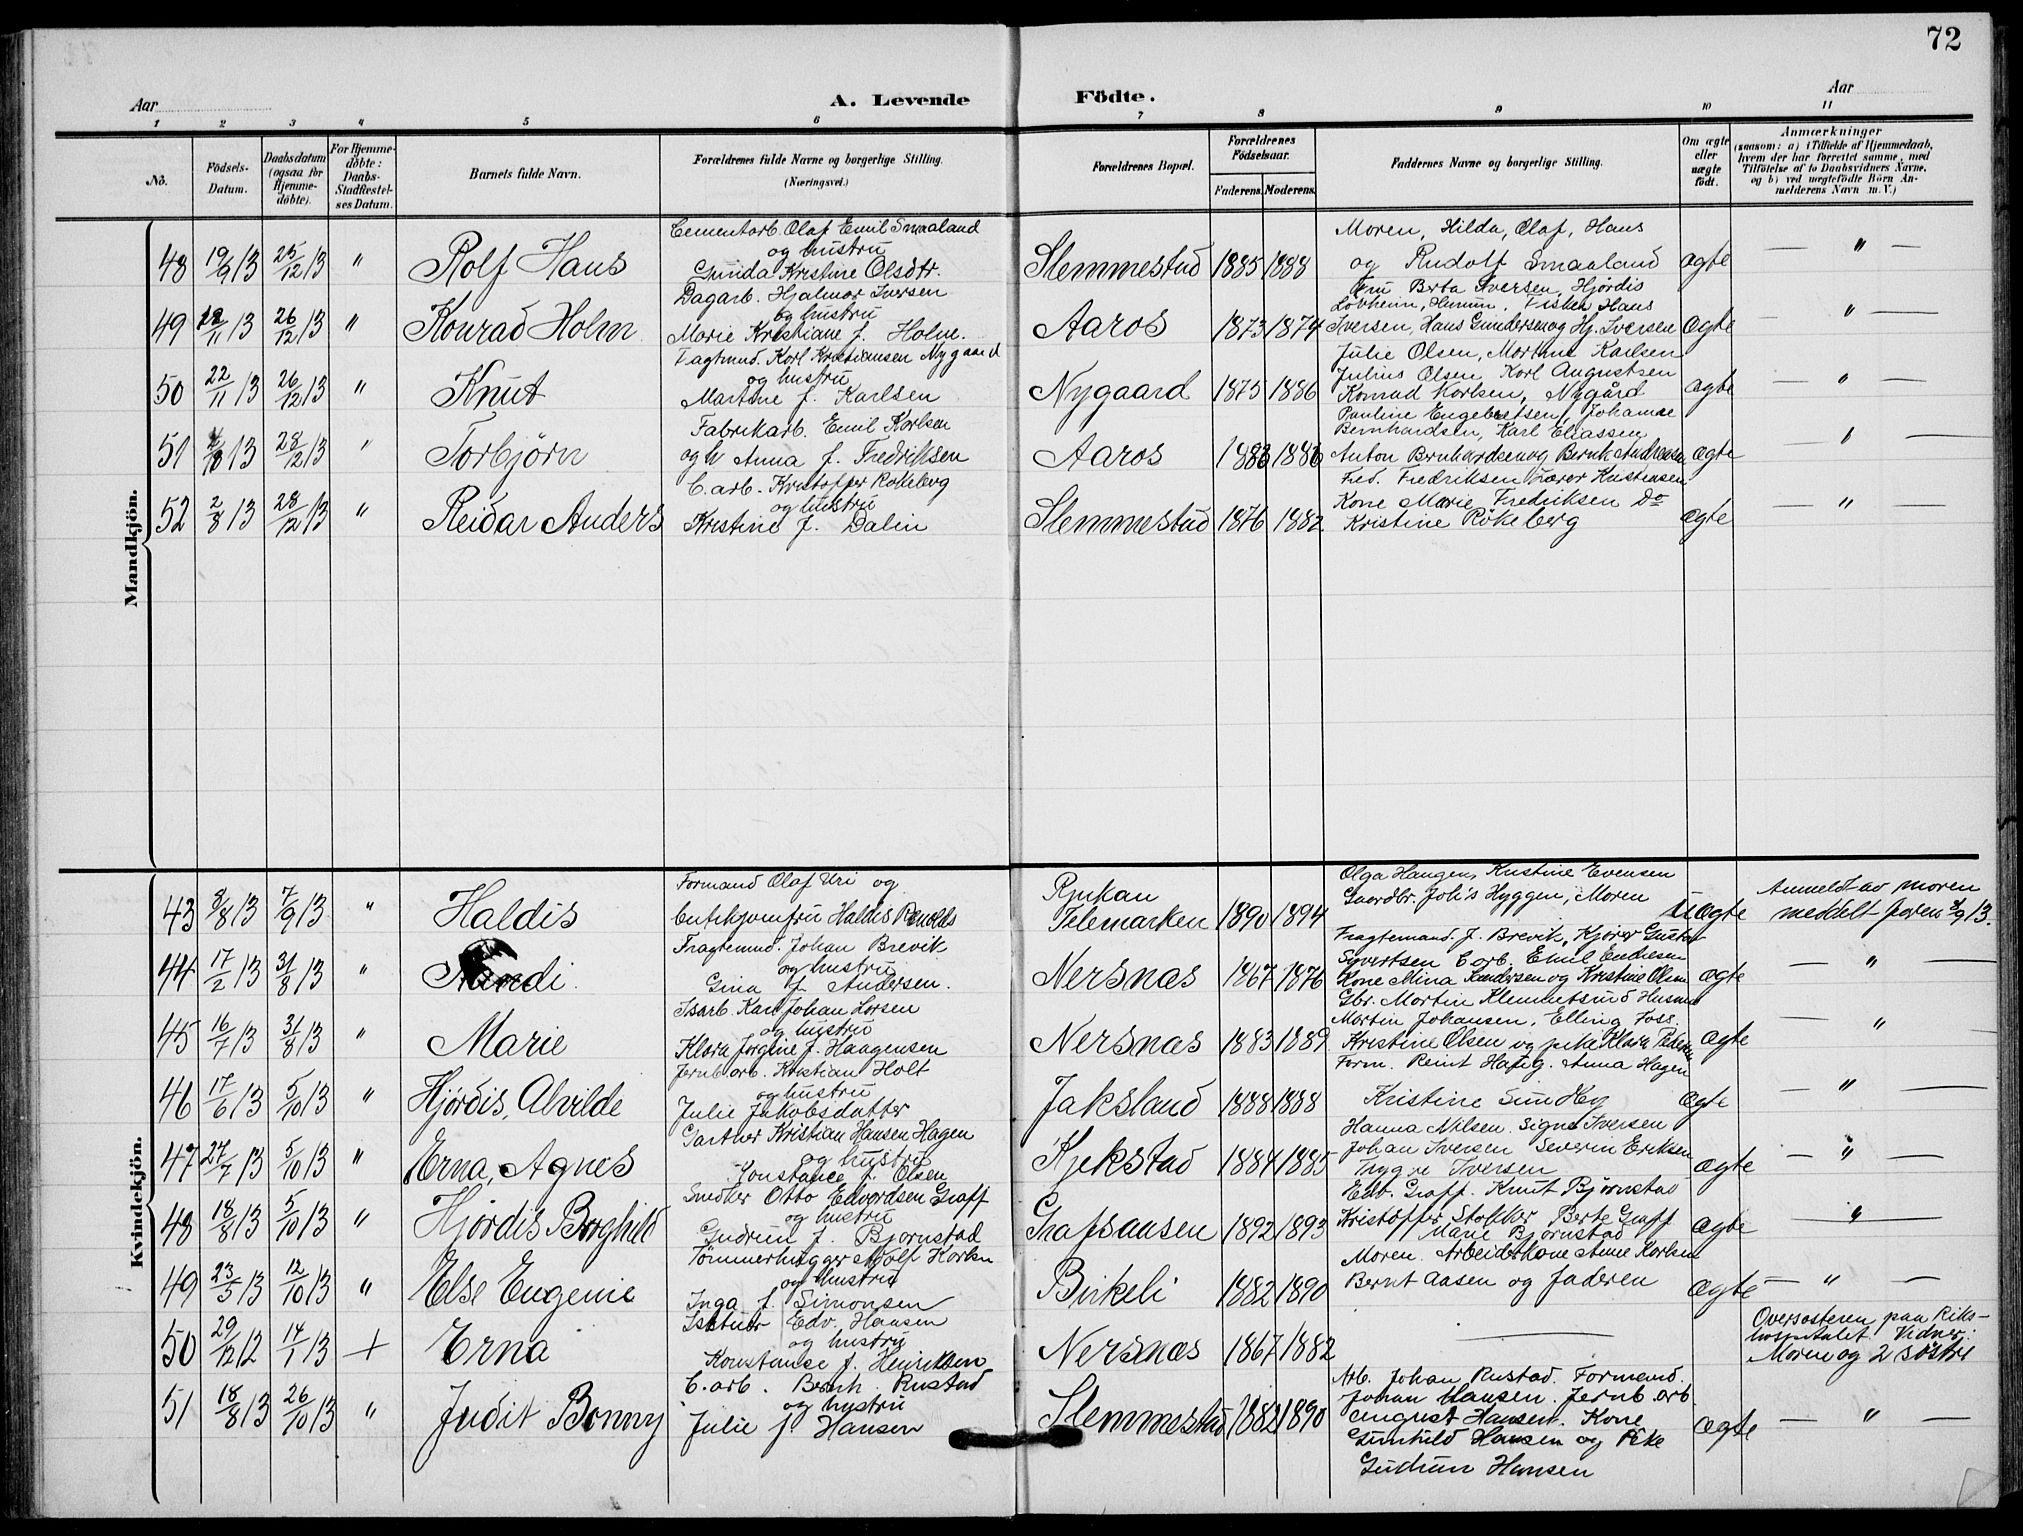 72
Aar
A. Levende Födte.
Aar
1 2 3 4 5 6 7 8 9 10 11
No.
Födsels-Datum.
Daabsdatum (ogsaa for Hjemme-döbte).
For Hjemme-döbte: Daabs-Stadfæstel-ses Datum.
Barnets fulde Navn.
Forældrenes fulde Navne og borgerlige Stilling.
(Næringsvei.)
Forældrenes Bopæl.
Forældrenes Födselsaar.
Faderens. Moderens.
Faddernes Navne og borgerlige Stilling.
Om ægte eller uægte födt.
Anmærkninger
(saasom: a) i Tilfælde af Hjemmedaab,
hvem der har forrettet samme, med
Tilföielse af to Daabsvidners Navne,
og b) ved uægtefödte Börn An-
melderens Navn m. V.)
Mandkjön.
48 19/9 13 25/12 13 " Rolf Hans
Cementarb. Olaf Emil Smaaland
og hustru
Gunda Kristine Olsdtr.
Slemmestad 1885 1888
Moren, Hilda, Olaf, Hans
og Rudolf Smaaland
ægte — " —
49 12/11 13 26/12 13 " Konrad Holm
Dagarb. Hjalmar Iversen
og hustru
Marie Kristiane f. Holm.
Aaros 1873 1874
Fru Berta Iversen, Hjördis
Lövheim, Hurum, Fisker Hans
Iversen, Hans Gundersen og Hj. Iversen
ægte — " —
50 22/11 13 26/12 13 " Knut
Fagtmnd. Karl Kristiansen Nygaard
og hustru
Martine f. Karlsen
Nygaard 1875 1886
Julie Olsen, Martine Karlsen
Julius Olsen, Karl Augustsen
Konrad Karlsen, Nygård
ægte — " —
51 /10 13 28/12 13 " Torbjörn
Fabrikarb. Emil Karlsen
og h Anna f. Fredriksen
Aaros 1883 1886
Pauline Engebretsen, Johanne
Bernhardsen, Karl Eliassen
Anton Bernhardsen og Bernh. Andresen
ægte — " —
52 2/8 13 28/12 13 " Reidar Anders
C. arb. Kristoffer Rokeberg
og hustru
Kristine f. Dalen
Slemmestad 1876 1882
Fred. Fredriksen Lærer Kristensen
Kone Marie Fredriksen Do
Kristine Rökeberg
ægte — " —
Kvindekjön.
43 8/8 13 7/9 13 " Haldis
Formand Olaf Uri og
Butikjomfru Haldis
Rjukan
Telemarken 1890 1894
Olga Haugen, Kristine Evensen
Gaardbr. Joh's Hyggen, Moren
uægte
Anmeldt av moren
meddelt faren 8/9 13.
44 17/2 13 31/8 13 "
Fragtemnd. Johan Brevik
og hustru
Gina f. Andersen.
Nersnæs 1867 1876
Fragtemand. J. Brevik, Kjörer Gustav
Syvertsen C. arb. Emil Endresen
Kone Mina Sandersen og Kristine Olsen
ægte — " —
45 16/7 13 31/8 13 " Marie
Isarb. Karl Johan Larsen
og hustru
Klara Jörgine f. Haagensen
Nersnæs 1883 1889
Gbr. Martin Klemmetsrud Husmd
Martin Johansen, Elling Foss.
Kristine Olsen og pike Klara Pedersen
ægte — " —
46 17/6 13 5/10 13 " Hjördis, Alvilde
Jernb. arb. Kristian Holt
og hustru
Julie Jakobsdatter
Jaksland 1888 1888
Form. Reint Haug. Anna Hagen
Kristine
ægte — " —
47 27/7 13 5/10 13 " Erna, Agnes
Gartner Kristian Hansen Hagen
og hustru
Konstance f. Olsen
Kjekstad 1884 1885
Hanna Nilsen. Signe Iversen
Johan Iversen Severin Eriksen
Trygve Iversen
ægte — " —
48 18/8 13 5/10 13 " Hjördis Borghild
Snedker Otto Edvardsen Graff
og hustru
Gudrun f. Björnstad
Grafsaasen 1892 1893
Edv. Graff. Knut Björnstad
Kristoffer Stokker Berte Graff
Marie Björnstad
ægte — " —
49 23/5 13 12/10 13 " Else Eugenie
Tömmerhugger Adolf Karlsen
og hustru
Inga f. Simonsen
Birkeli 1882 1890
Moren. Arbeiderkone Anne Karlsen
Bernt Aasen og faderen
ægte — " —
50 29/12 12 14/1 13 + Erna
Edv. Hansen
og hustru
Konstanse f. Henriksen
Nersnæs 1867 1882
—
Oversösteren paa Riks-
hospitalet. Vidner:
Moren og 2 söstre
51 18/8 13 26/10 13 " Judit Bonny
C. arb. Bernh. Rustad
og hustru
Julie f. Hansen
Slemmestad 1882 1890
Arb. Johan Rustad. Formand.
Johan Hansen. Jernb. arb
August Hansen. Kone
Gunhild Hansen og Pike
Gudrun Hansen
ægte — " —